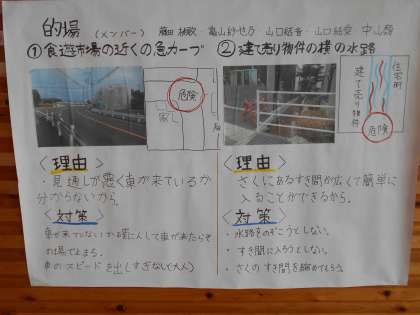 的場 (メンバー) 藤田 高山紗也乃 山口結香・山口結愛 中山
①食遊市場の近くの急カーブ
危険
家
<理由>
・見通しが悪く車が来ているか
分からないから。
<対策>
車が来ていないか確にんして車が来たらそ
の場で止まる。
車のスピードを出しすぎない(大人)
②建て売り物件の横の水路
住宅街
建て売り物件
危険
<理由>
さくにあるすき間が広くて簡単に
入ることができるから。
<対策>
・水路をのぞこうとしない。
・すき間に入ろうとしない。
・さくのすき間を縮めてもらう。